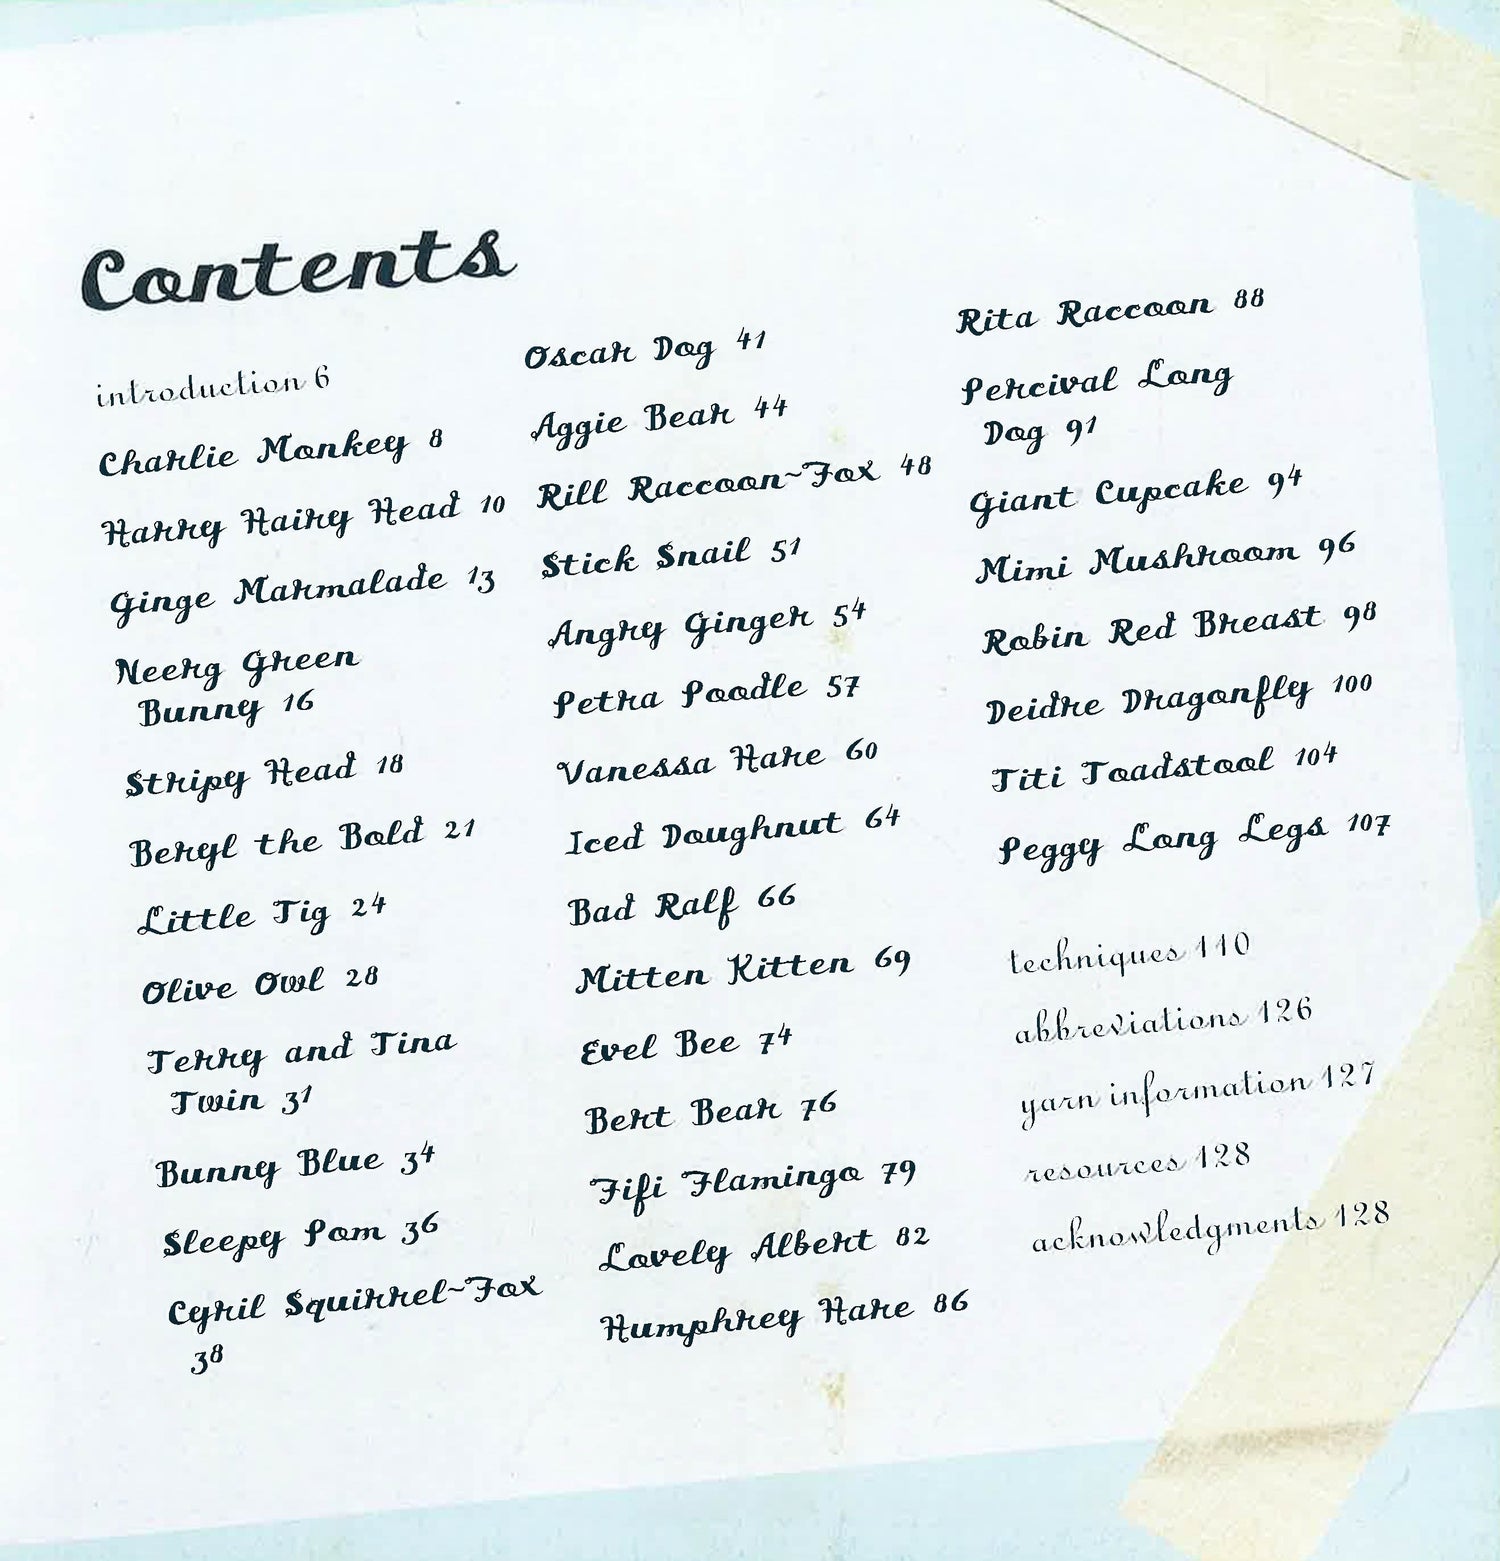 Contents
introduction 6
Charlie Monkey 8
Harry Hairy Head 10
Ginge Marmalade 13
Neerg Green
Bunny 16
Stripy Head 18
Beryl the Bold 21
Little Tig 24
Olive Owl 28
Terry and Tina
Twin 31
Bunny Blue 34
Sleepy Pom 36
Cyril Squirrel~Fox
38
Oscar Dog 41
Aggie Bear 44
Rill Raccoon~Fox 48
Stick Snail 51
Angry Ginger 54
Petra Poodle 57
Vanessa Hare 60
Iced Doughnut 64
Bad Ralf 66
Mitten Kitten 69
Evel Bee 74
Bert Bear 76
Fifi Flamingo 79
Lovely Albert 82
Humphrey Hare 86
Rita Raccoon 88
Percival Long
Dog 91
Giant Cupcake 94
Mimi Mushroom 96
Robin Red Breast 98
Deidre Dragonfly 100
Titi Toadstool 104
Peggy Long Legs 107
techniques 110
abbreviations 126
yarn information 127
resources 128
acknowledgments 128